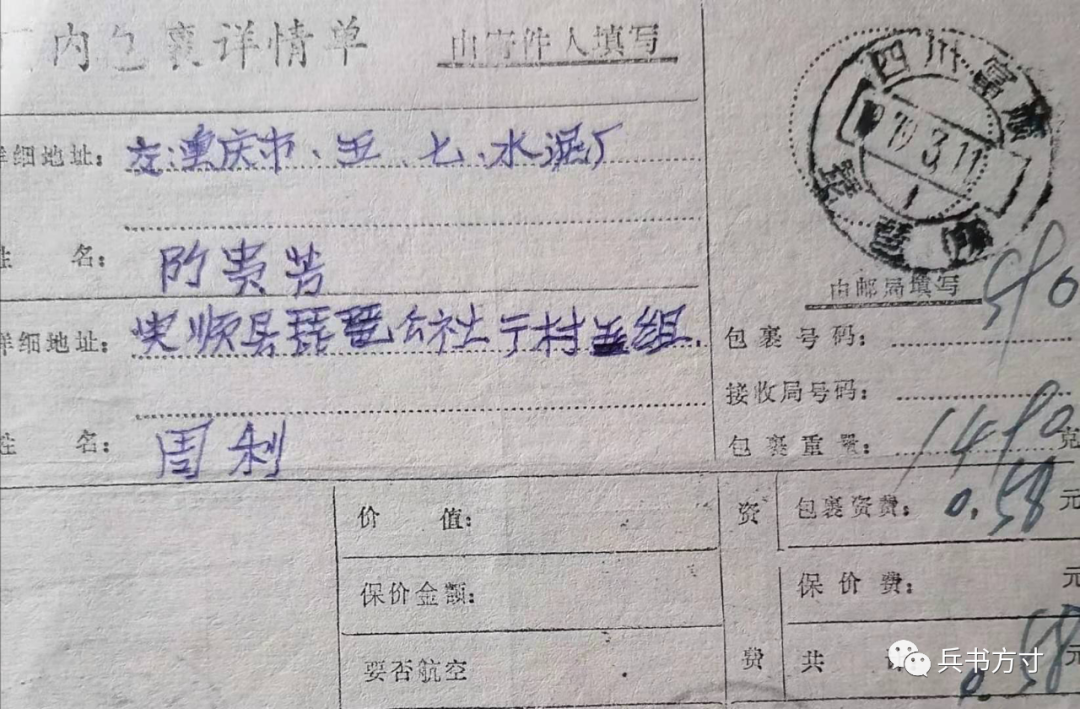 内包裹详情单 由寄件人填写
详细地址: 交重庆市、五七水泥厂
姓 名: 贵芳
详细地址: 顺县琵琶公社 村 组.
姓 名: 周利
四川富顺
79.3.11
1
琵琶
由邮局填写
包裹号码: 590
接收局号码:
包裹重量: 1490 克
价 值:
保价金额:
要否航空
资费
包裹资费: 0.58 元
保价费: 元
共 计 0.58 元
兵书方寸